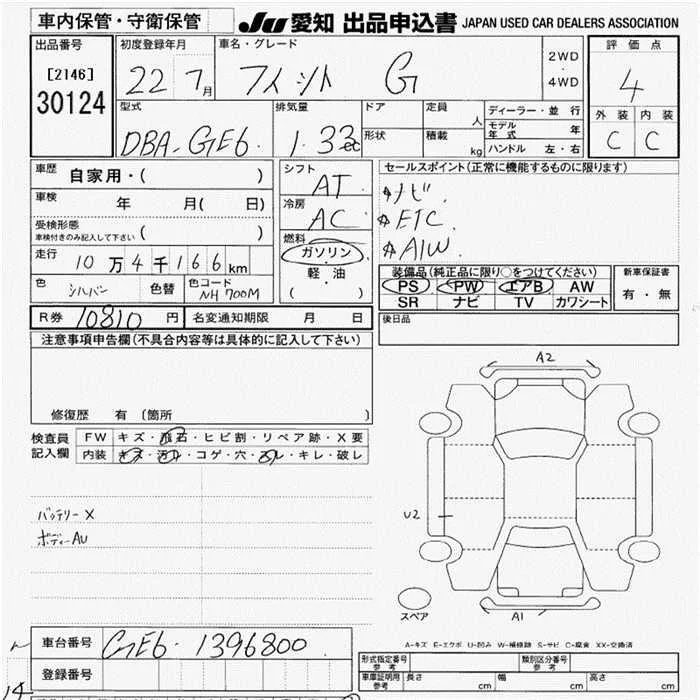 車内保管・守衛保管 JU 愛知 出品申込書 JAPAN USED CAR DEALERS ASSOCIATION
出品番号 初度登録年月 車名・グレード 評価点
[2146] 22 7月 フィット G 2WD・4WD 4
30124 型式 排気量 ドア 定員 人 ディーラー・並行 外装 内装
DBA-GE6 1.33cc 形状 積載 kg モデル年式 年 C C
ハンドル 左・右
車歴 自家用・( ) シフト AT セールスポイント(正常に機能するものに限ります)
車検 年 月( 日) 冷房 AC ☆ナビ
受検形態 ☆ETC
車検付きのみ記入して下さい ( ) 燃料 ☆A/W
走行 10万4千166km ガソリン・軽油 装備品(純正品に限り○をつけてください) 新車保証書
色 シルバー 色替 色コード NH700M ( ) PS PW エアB AW 有・無
SR ナビ TV カワシート
R券 10810円 名変通知期限 月 日 後日品
注意事項申告欄(不具合内容等は具体的に記入して下さい)
A2
修復歴 有 [箇所 ]
検査員 FW キズ・飛石・ヒビ割・リペア跡・X要
記入欄 内装 キズ・汚レ・コゲ・穴・スレ・キレ・破レ
バッテリーX U2
ボディーAU
スペア A1
A-キズ E-エクボ U-凹み W-補修跡 S-サビ C-腐食 XX-交換済
車台番号 GE6-1396800 形式指定番号 参考 類別区分番号 参考
登録番号 車庫証明用 参考 長さ cm 幅 cm 高さ cm
14